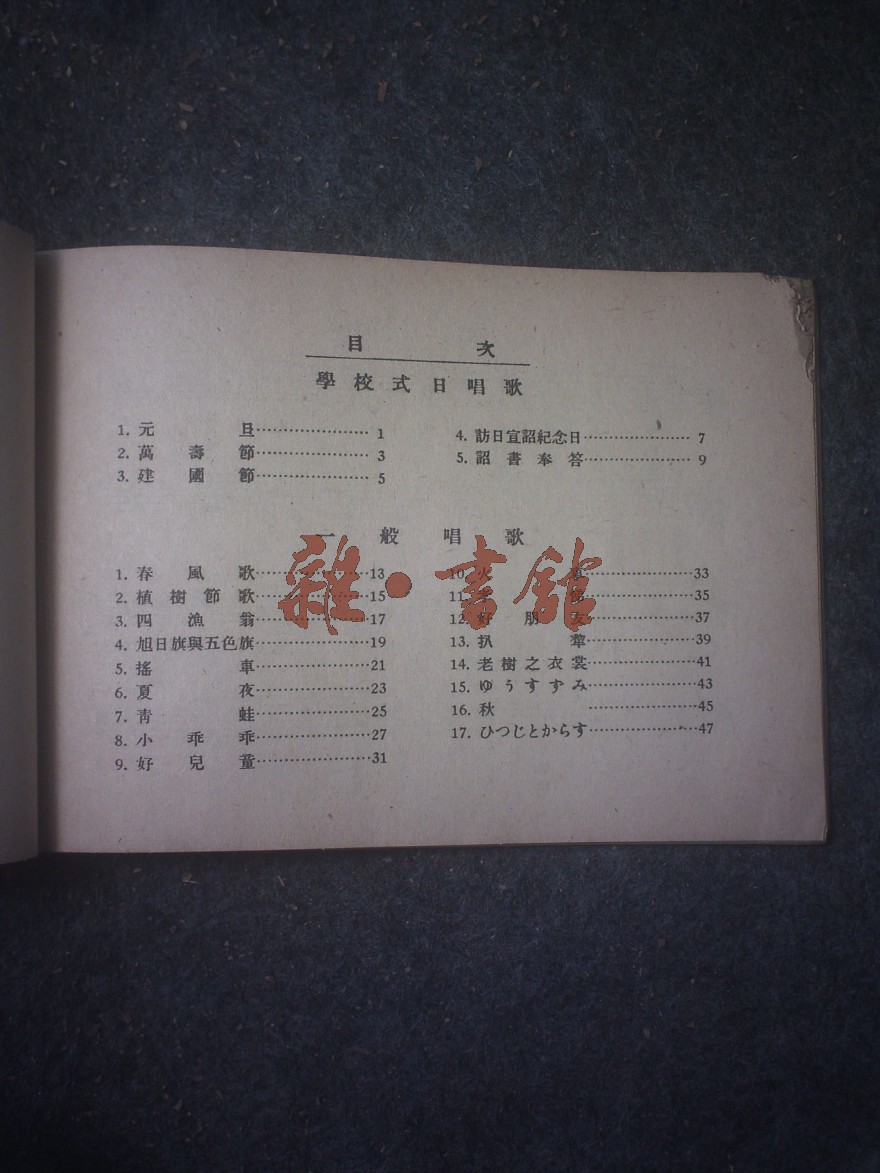 目次
學校式日唱歌
1. 元旦 1
2. 萬壽節 3
3. 建國節 5
4. 訪日宣詔紀念日 7
5. 詔書奉答 9
一般唱歌
1. 春風歌 13
2. 植樹節歌 15
3. 四漁翁 17
4. 旭日旗與五色旗 19
5. 搖車 21
6. 夏夜 23
7. 青蛙 25
8. 小乖乖 27
9. 好兒童 31
10. 火 33
11. 35
12. 好朋友 37
13. 扒犂 39
14. 老樹之衣裳 41
15. ゆうすずみ 43
16. 秋 45
17. ひつじとからす 47
雜·書館